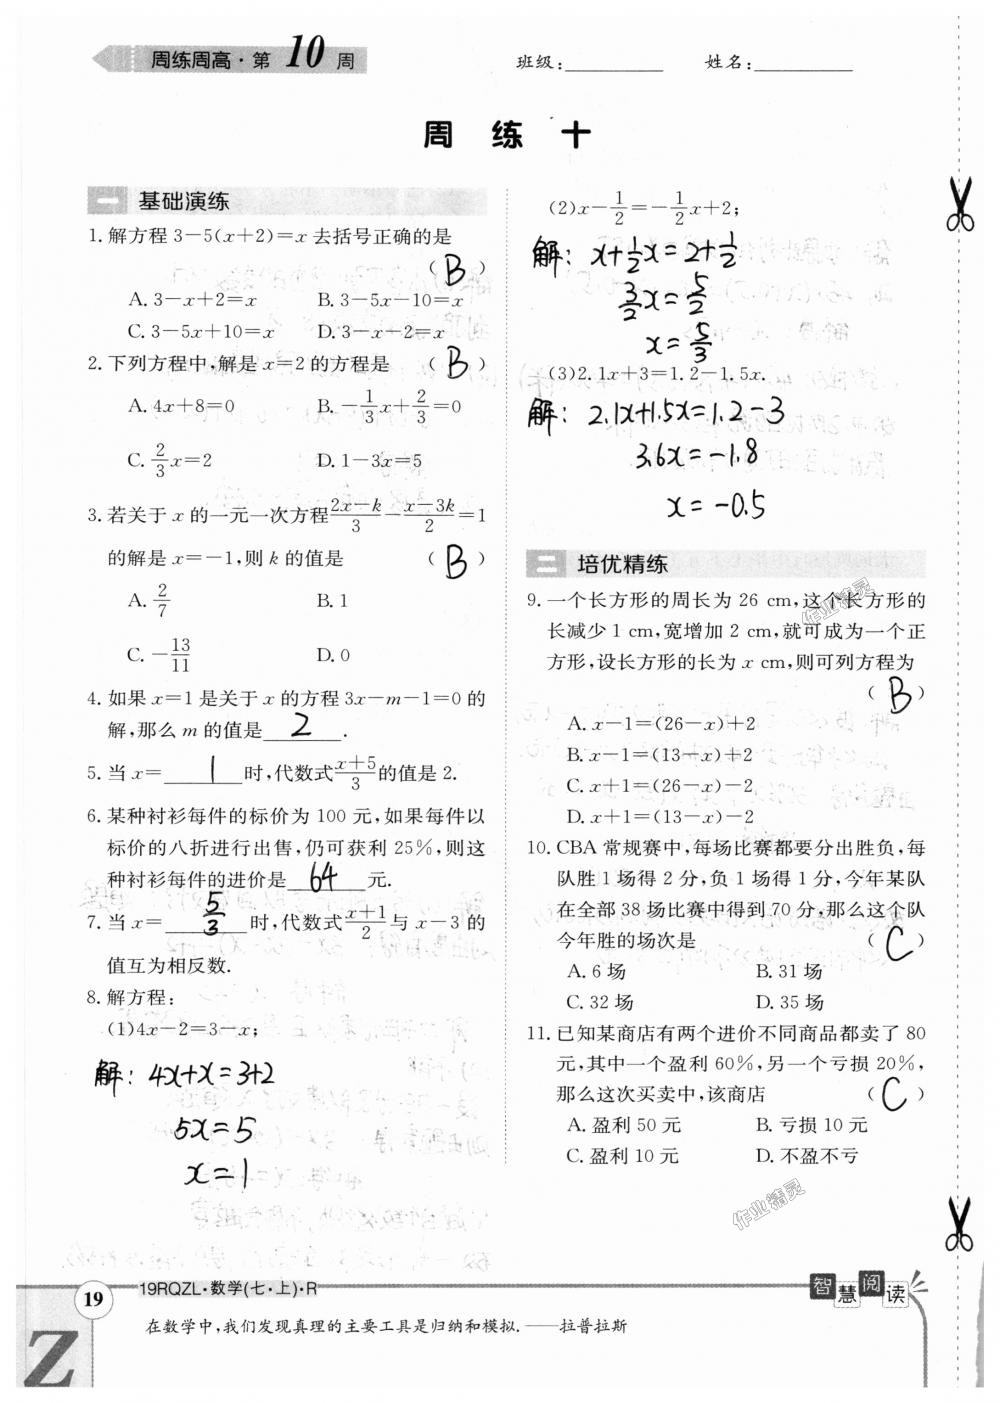 周练周高·第10周
班级:________ 姓名:________
周 练 十
一 基础演练
1. 解方程 3-5(x+2)=x 去括号正确的是
( B )
A. 3-x+2=x B. 3-5x-10=x
C. 3-5x+10=x D. 3-x-2=x
2. 下列方程中,解是 x=2 的方程是 ( B )
A. 4x+8=0 B. -1/3x+2/3=0
C. 2/3x=2 D. 1-3x=5
3. 若关于 x 的一元一次方程(2x-k)/3-(x-3k)/2=1
的解是 x=-1,则 k 的值是 ( B )
A. 2/7 B. 1
C. -13/11 D. 0
4. 如果 x=1 是关于 x 的方程 3x-m-1=0 的
解,那么 m 的值是 2 .
5. 当 x= 1 时,代数式(x+5)/3的值是 2.
6. 某种衬衫每件的标价为 100 元,如果每件以
标价的八折进行出售,仍可获利 25%,则这
种衬衫每件的进价是 64 元.
7. 当 x= 5/3 时,代数式(x+1)/2与 x-3 的
值互为相反数.
8. 解方程:
(1)4x-2=3-x;
解: 4x+x=3+2
5x=5
x=1
(2)x-1/2=-1/2x+2;
解: x+1/2x=2+1/2
3/2x=5/2
x=5/3
(3)2.1x+3=1.2-1.5x.
解: 2.1x+1.5x=1.2-3
3.6x=-1.8
x=-0.5
二 培优精练
9. 一个长方形的周长为 26 cm,这个长方形的
长减少 1 cm,宽增加 2 cm,就可成为一个正
方形,设长方形的长为 x cm,则可列方程为
( B )
A. x-1=(26-x)+2
B. x-1=(13-x)+2
C. x+1=(26-x)-2
D. x+1=(13-x)-2
10. CBA 常规赛中,每场比赛都要分出胜负,每
队胜 1 场得 2 分,负 1 场得 1 分,今年某队
在全部 38 场比赛中得到 70 分,那么这个队
今年胜的场次是 ( C )
A. 6 场 B. 31 场
C. 32 场 D. 35 场
11. 已知某商店有两个进价不同商品都卖了 80
元,其中一个盈利 60%,另一个亏损 20%,
那么这次买卖中,该商店 ( C )
A. 盈利 50 元 B. 亏损 10 元
C. 盈利 10 元 D. 不盈不亏
作业精灵
作业精灵
19 19RQZL·数学(七·上)·R
智慧阅读
在数学中,我们发现真理的主要工具是归纳和模拟. ——拉普拉斯
Z